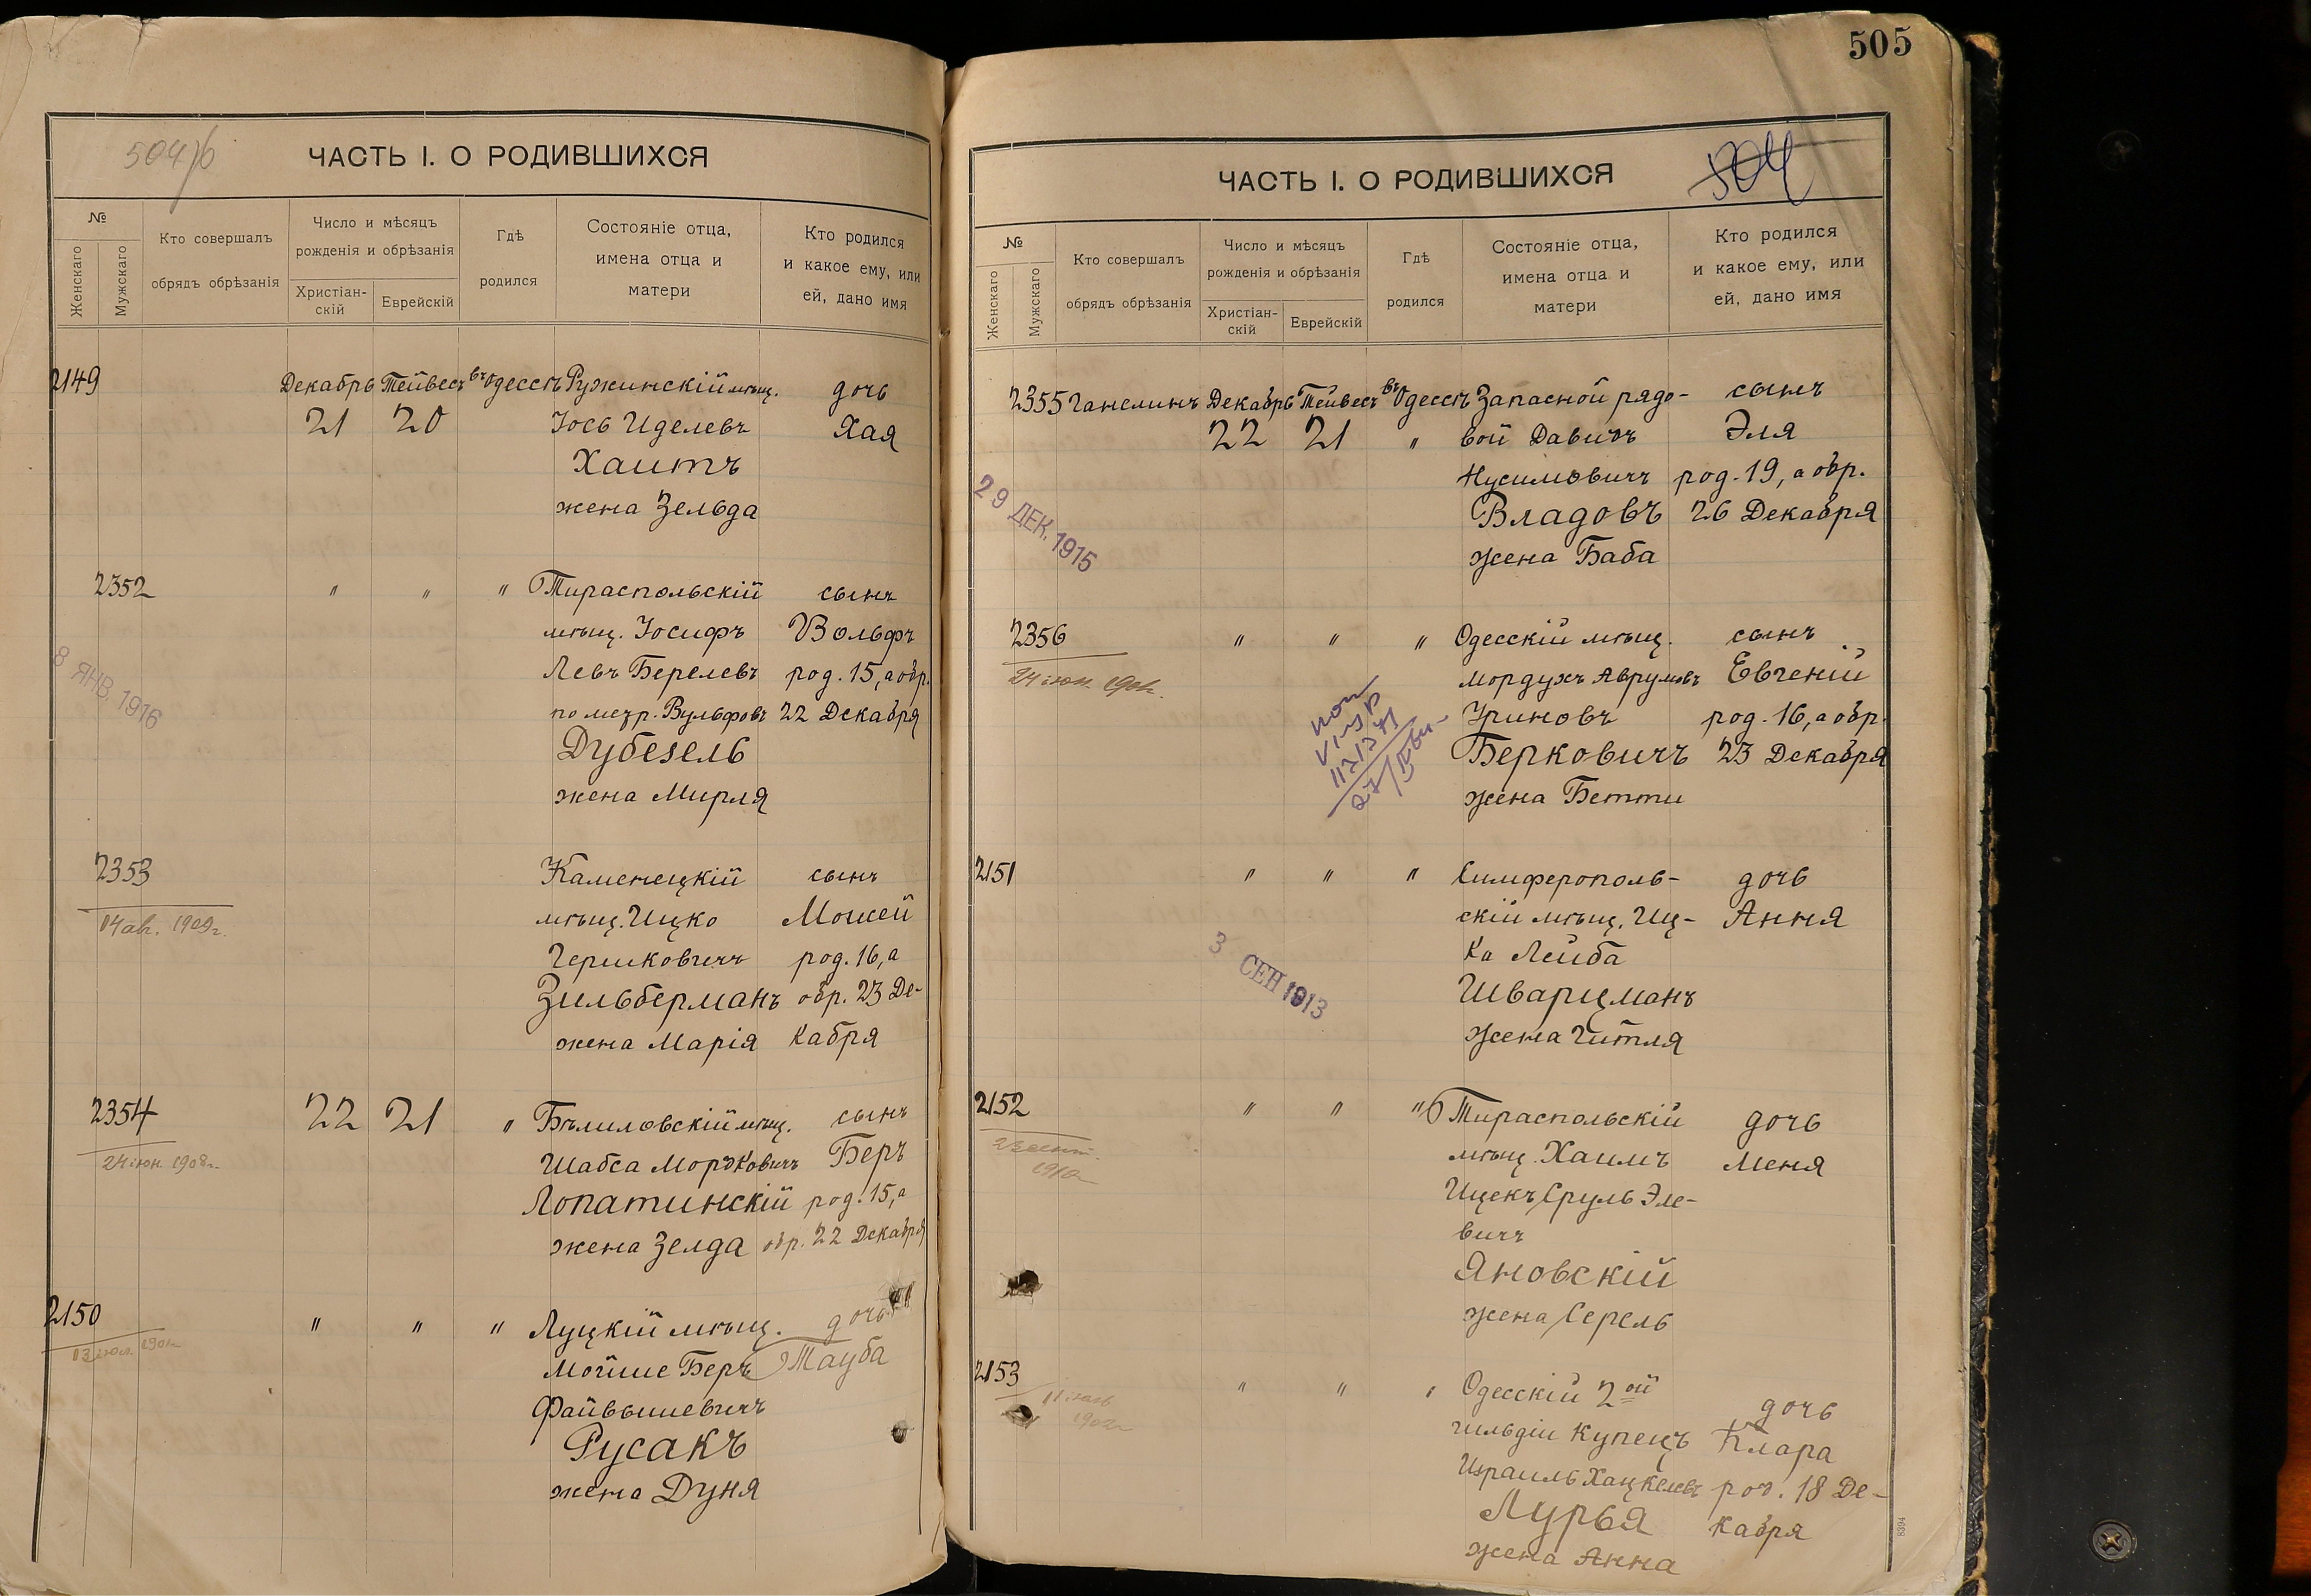 504/б
ЧАСТЬ I. О РОДИВШИХСЯ
№
Женскаго
Мужскаго
Кто совершалъ
обрядъ обрѣзанія
Число и мѣсяцъ
рожденія и обрѣзанія
Христіан-
скій
Еврейскій
Гдѣ
родился
Состояніе отца,
имена отца и
матери
Кто родился
и какое ему, или
ей, дано имя
2149 Декабрь Тейвесъ въ Одессѣ Ружинскій мѣщ. дочь
21 20 Іось Иделевъ Хая
Хаитъ
жена Зельда
2352 " " " Тираспольскій сынъ
мѣщ. Іосифъ Вольфъ
Левъ Берелевъ род. 15, а обр.
по метр. Вульфовъ 22 Декабря
8 ЯНВ. 1916
Дубезель
жена Мирля
2353 Каменецкій сынъ
14 ав. 1909г. мѣщ. Ицко Мошей
Гершковичъ род. 16, а
Зильберманъ обр. 23 Де-
жена Марія кабря
2354 22 21 " Бѣлиловскій мѣщ. сынъ
24 іюн 1908г. Шабса Мордковичъ Беръ
Лопатинскій род. 15, а
жена Зелда обр. 22 Декабря
2150 " " " Луцкій мѣщ. дочь
13 іюл. Мойше Беръ Тауба
Файвышевичъ
Русакъ
жена Дуня
505
504
ЧАСТЬ I. О РОДИВШИХСЯ
№
Женскаго
Мужскаго
Кто совершалъ
обрядъ обрѣзанія
Число и мѣсяцъ
рожденія и обрѣзанія
Христіан-
скій
Еврейскій
Гдѣ
родился
Состояніе отца,
имена отца и
матери
Кто родился
и какое ему, или
ей, дано имя
2355 Ганелинъ Декабрь Тейвесъ въ Одессѣ Запасной рядо- сынъ
22 21 " вой Давидъ Эля
Нусимовичъ род. 19, а обр.
29 ДЕК. 1915
Владовъ 26 Декабря
жена Баба
2356 " " " Одесскій мѣщ. сынъ
24 іюн. Мордухъ Аврумовъ Евгеній
Уриновъ род. 16, а обр.
Берковичъ 23 Декабря
жена Бетти
2151 " " " Симферополь- дочь
скій мѣщ. Иц- Ання
ка Лейба
3 СЕН 1913
Шварцманъ
жена Гитля
2152 " " " Тираспольскій дочь
23 сент. 1910 мѣщ. Хаимъ Меня
Ицекъ Сруль Эле-
вичъ
Яновскій
жена Серель
2153 " " " Одесскій 2ой дочь
гильдіи купецъ Клара
Израиль Хацкелевъ род. 18 Де-
Лурья кабря
жена Анна
8394